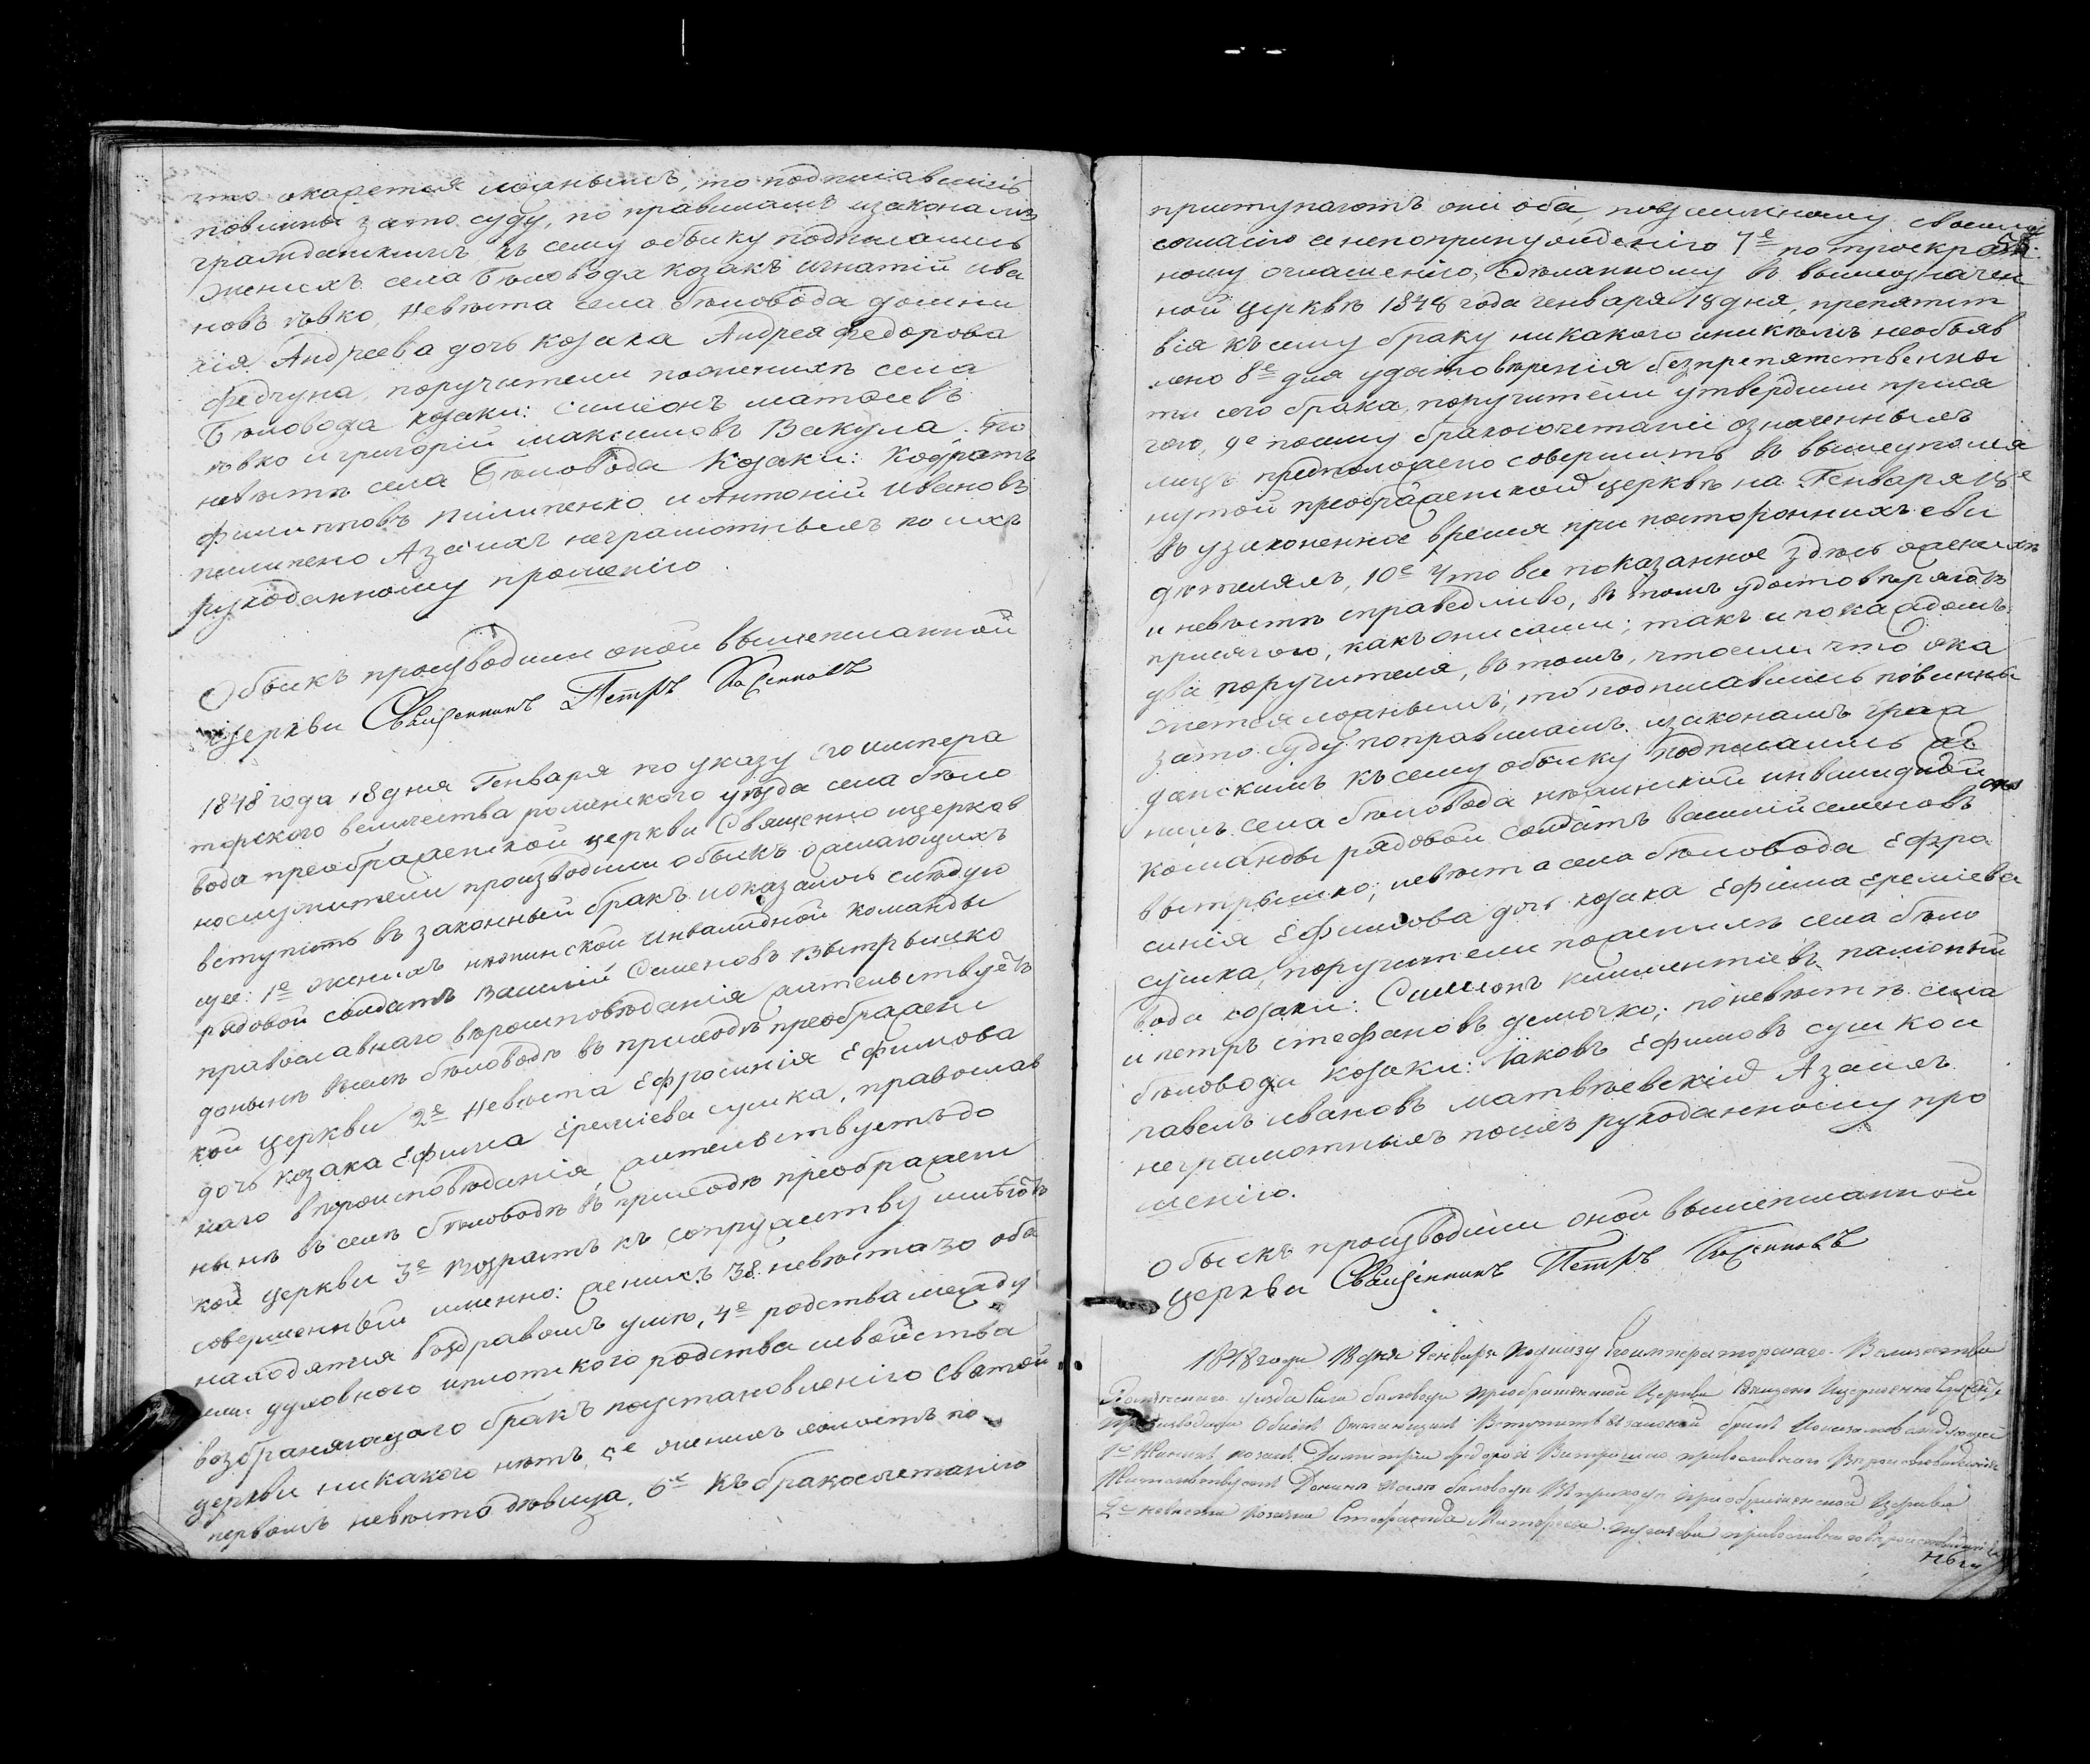 что окажется ложнымъ, то подписавшіесь
повинны зато суду, по правиламъ изаконамъ
гражданскимъ, къ сему обыску подписались
женихъ села Бѣловода козакъ игнатій ива
новъ невѣста села бѣловода домни
кія Андреева дочь козака Андрея федорова
федчуна, поручители поженихѣ села
Бѣловода козаки: симеонъ матвеевъ
и григорій максимовъ Вакула. по
невѣстѣ села Бѣловода козаки: Кодратъ
филиповъ пилипенко и Антоній ивановъ
А заихъ неграмотныхъ по ихъ
рукоданному прошенію.
Обыскъ производили оной вышеписанной
церкви Священникъ Петръ
1848 года 18 дня Генваря по указу его импера
торского величества роменского уѣзда села бѣло
вода преображенской церкви Священно ицерков
нослужители производили обыскъ ожелающихъ
вступить в законный бракъ ипоказалось слѣдую
щее: 1е женихъ нѣжинской инвалидной команды
рядовой солдатъ василій Семеновъ вытрышко
православнаго вѣроисповѣданія жительствуетъ
донынѣ всѣлѣ бѣловодѣ въ приходѣ преображенс
кой церкви 2е Невѣста Ефросинія Ефимова
дочь козака Ефима Еремѣева сушка, православ
наго вѣроисповѣданія, жительствуетъ до
нынѣ въ селѣ бѣловодѣ въ приходѣ преображенс
кой церкви 3е Возрастъ къ супружеству имѣютъ
совершенный именно: женихъ 38 невѣста 30 оба
находятся вздравомъ умѣ, 4е родства между
ими духовного иплотского родства исвойства
возбраняющаго бракъ поустановленію святой
церкви никакого нѣтъ, 5е женихъ холостъ по
первомъ невѣста дѣвица, 6е къ бракосочетанію
приступаютъ они оба, повзаимному своему
согласію анепопринужденію 7е по троекрат
ному оглашенію, сдѣланному въ вышеозначен
ной церквѣ 1848 года генваря 18 дня, препятст
вія къ сему браку никакого иникѣмъ необъяв
лено 8е для удостовѣренія безпрепятственнос
ти сего брака, поручители утвердили прися
гою, 9е посему бракосочетаніе означенныхъ
лицъ предположено совершить въ вышеупомя
нутой преображенской церквѣ на Генваря 18е
въ узаконенное время при постороннихъ сви
дѣтеляхъ, 10е Что все показанное здѣсь оженихѣ
и невѣстѣ справедливо, въ томъ удостовѣряютъ
присягою, какъ они сами; такъ и по каждомъ
два поручителя, въ томъ, чтоесли что ока
жется ложнымъ, то подписавшіесь повинны
зато суду по правиламъ изаконамъ граж
данскимъ къ сему обыску подписались же
нихъ села бѣловода нѣжинской инвалидной
команды рядовой солдатъ василій семеновъ
вытрышко; невѣста села бѣловода Ефро
синія Ефимова дочь козака Ефима Еремѣева
сушка, поручители поженихѣ села бѣло
вода козаки: Симеонъ климентіевъ
и петръ стефановъ демочко; поневѣстѣ села
бѣловода козаки: Іаковъ Ефимовъ сушко и
павелъ ивановъ матвѣевскій А заихъ
неграмотныхъ поихъ рукоданному про
шенію.
Обыскъ производили оной вышеписанной
церкви Священникъ Петръ
1848 года 18 дня Генваря Поуказу Его императорскаго Величества
Роменскаго уезда Села беловода преображенской Церкви Священо Ицерковно
производили Обыскъ Ожелающихъ Вступить взаконой бракъ
1е Женихъ козакъ Димитрій федоровъ православнаго Вероисповеданія
Жительствуетъ Донынѣ беловоде Вприходе преображенской Церкви
2е невеста православнаго вероисповеданія